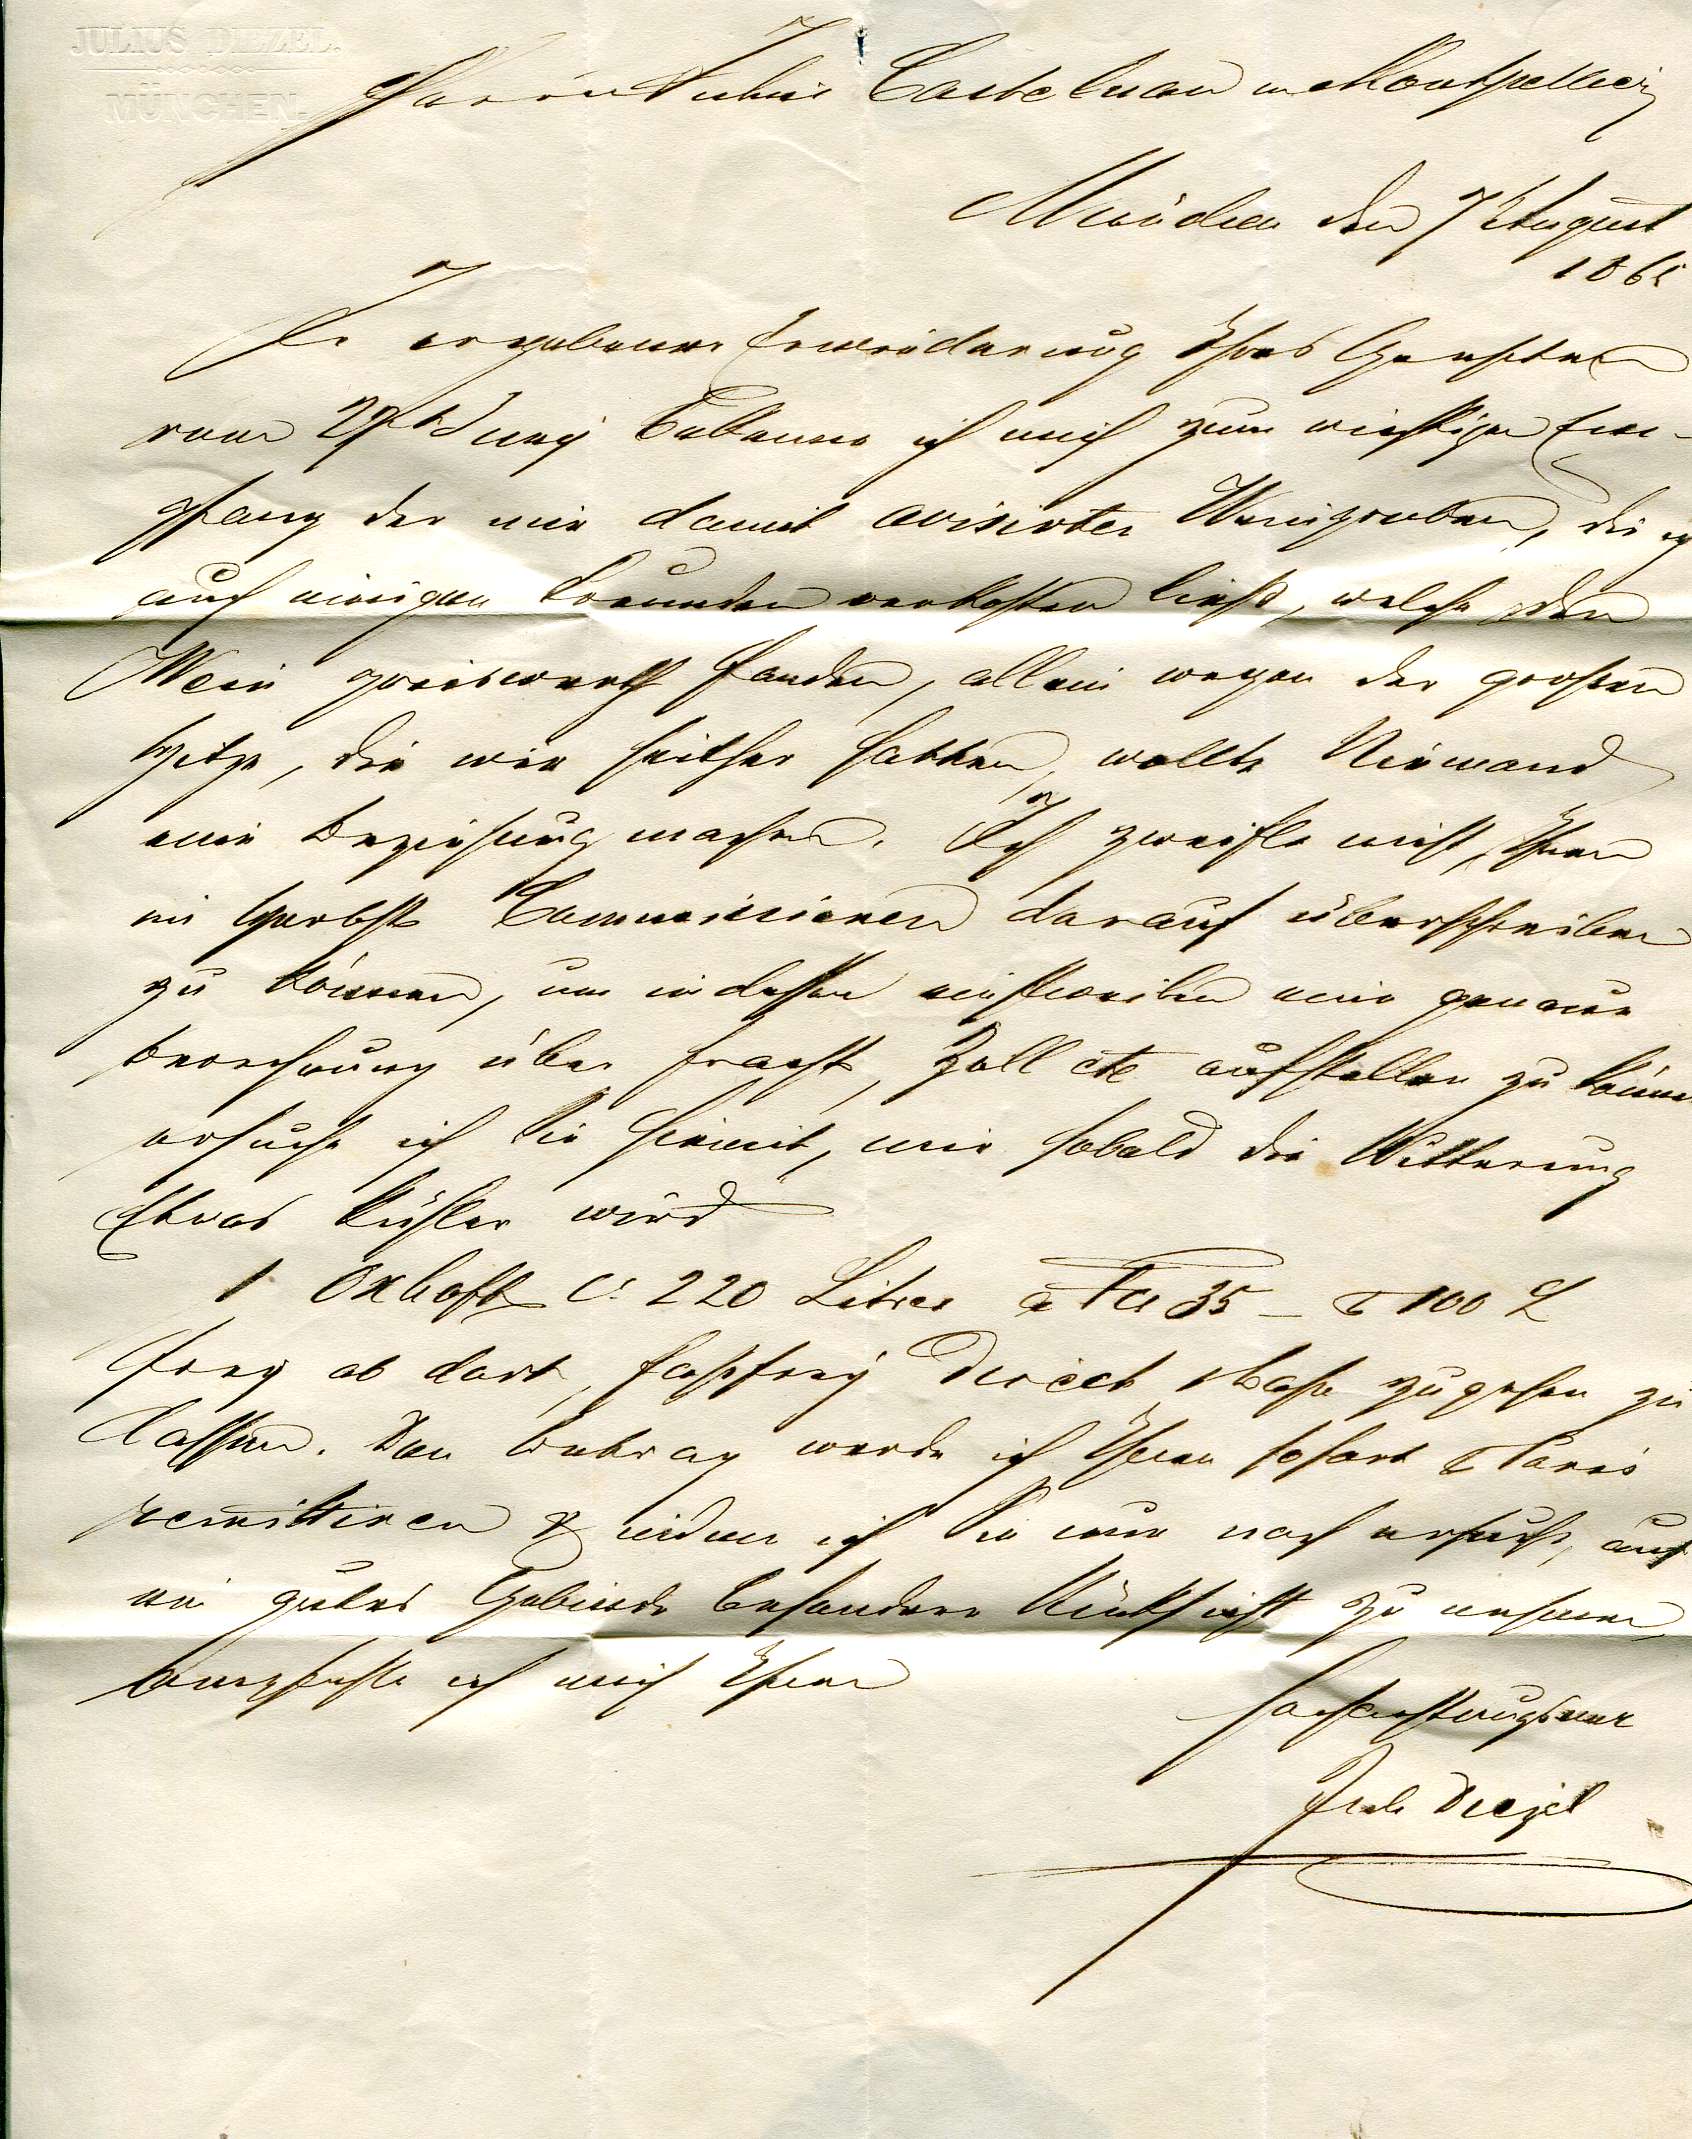 JULIUS DIEZEL.
MÜNCHEN.
Herrn Julius Castelnau in Montpellier
München den 7 August
1865
In ergebener Erwiederung Ihres Geehrten
vom 27t Juny bekenne ich mich zum richtigen Em-
pfang der mir damit avisirten Weinproben, die ich
auch einigen Freunden verkosten ließ, welche den
Wein preiswerth fanden, allein wegen der großen
Hitze, die wir seither hatten, wollte Niemand
eine Beziehung machen. Ich zweifle nicht, Ihnen
im Herbst Commissionen darauf überschreiben
zu können, um indessen einstweilen eine genaue
Berechnung über Fracht, Zoll etc aufstellen zu können
ersuche ich Sie hiemit, mir sobald die Witterung
Etwas kühler wird
1 Oxhoft Ca 220 Litres a Fcs 35 – a 100 L
frey ab dort, faßfrey direct zugehen zu
lassen. Den Betrag werde ich Ihnen sofort a Paris
remittiren & indem ich Sie nur noch ersuche, auf
ein gutes Gebinde besondere Rücksicht zu nehmen,
empfehle ich mich Ihnen
hochachtungsvoll
Jul. Diezel